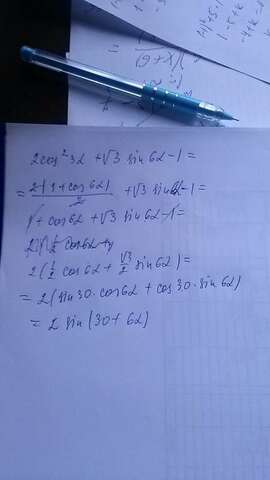 2cos²3α + √3 sin6α - 1 =
= 2(1 + cos6α)/2 + √3 sin6α - 1 =
1 + cos6α + √3 sin6α - 1 =
2(1/2 cos6α + √3/2 sin6α) =
= 2(sin30·cos6α + cos30·sin6α)
= 2 sin(30 + 6α)